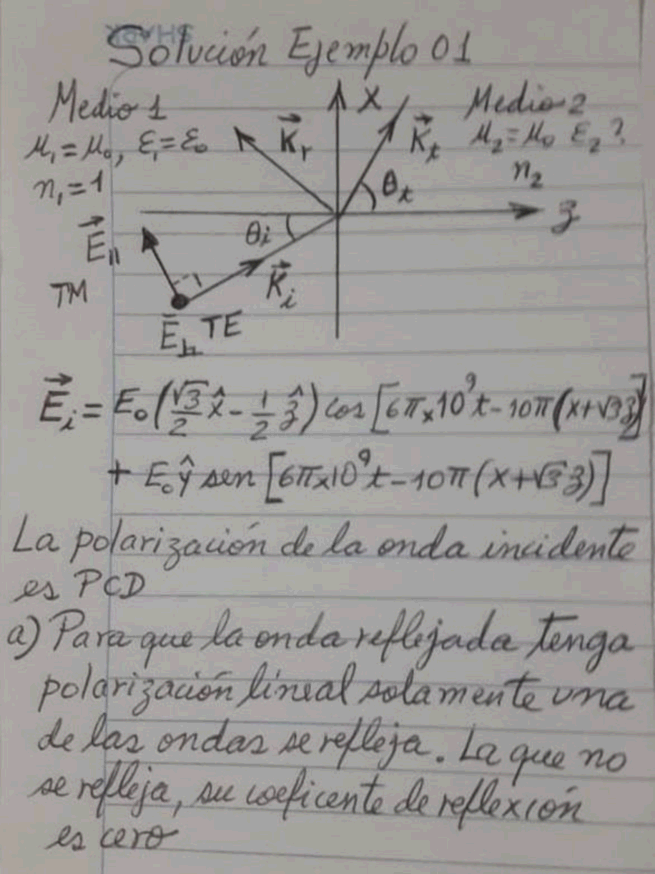 SHARK
Solución Ejemplo 01
Medio 1
μ₁=μ₀, ε₁=ε₀
n₁=1
K⃗r
X
K⃗t
Medio 2
μ₂=μ₀ ε₂?
n₂
θt
z
θi
E⃗∥
TM
K⃗i
E⃗⊥ TE
E⃗i = E₀(√3/2 x̂ - 1/2 ẑ) cos [6πx10⁹t - 10π(x+√3z)]
+ E₀ŷ sen [6πx10⁹t - 10π(x+√3z)]
La polarización de la onda incidente
es PCD
a) Para que la onda reflejada tenga
polarización lineal solamente una
de las ondas se refleja. La que no
se refleja, su coeficente de reflexión
es cero